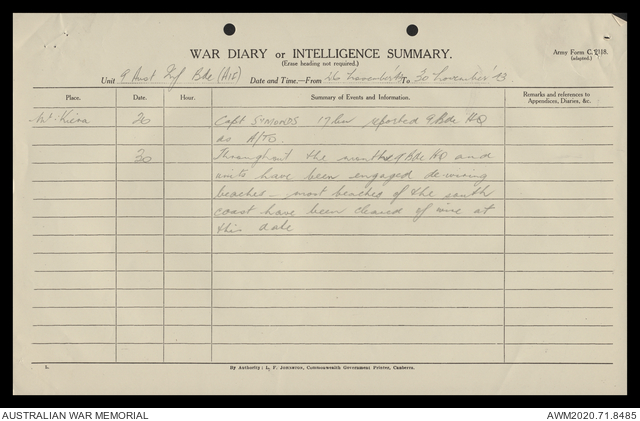 WAR DIARY or INTELLIGENCE SUMMARY.
(Erase heading not required.)
Army Form C. 2118.
(adapted.)
Unit 9 Aust Inf Bde (AIF) Date and Time.—From 26 November '43 To 30 November '43
Place. Date. Hour. Summary of Events and Information. Remarks and references to Appendices, Diaries, &c.
Mt. Kiera 26 Capt SYMONDS 17 Bn reported 9 Bde HQ
as A/TO.
30 Throughout the month 9 Bde HQ and
units have been engaged dewiring
beaches - most beaches of the south
coast have been cleared of wire at
this date
By Authority: L. F. Johnston, Commonwealth Government Printer, Canberra.
AUSTRALIAN WAR MEMORIAL
AWM2020.71.8485